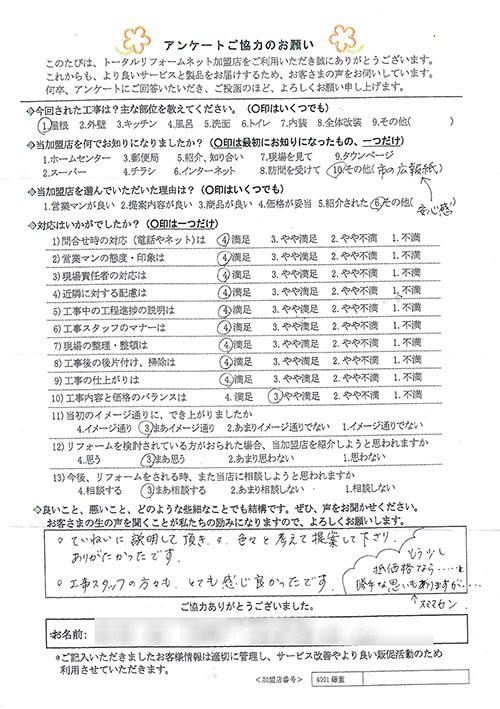 アンケートご協力のお願い
このたびは、トータルリフォームネット加盟店をご利用いただき誠にありがとうございます。
これからも、より良いサービスと製品をお届けするため、お客さまの声をお伺いしています。
何卒、アンケートにご回答いただき、ご投函のほど、よろしくお願い申し上げます。
◆今回された工事は？主な部位を教えてください。（〇印はいくつでも）
①屋根 2.外壁 3.キッチン 4.風呂 5.洗面 6.トイレ 7.内装 8.全体改装 9.その他( )
◆当加盟店を何でお知りになりましたか？（〇印は最初にお知りになったもの、一つだけ）
1.ホームセンター 3.郵便局 5.紹介、知り合い 7.現場を見て 9.タウンページ
2.スーパー 4.チラシ 6.インターネット 8.訪問を受けて ⑩その他(市の広報紙)
◆当加盟店を選んでいただいた理由は？（〇印はいくつでも）
1.営業マンが良い 2.提案内容が良い 3.商品が良い 4.価格が妥当 5.紹介された ⑥その他(安心感)
◆対応はいかがでしたか？（〇印は一つだけ）
1)問合せ時の対応（電話やネット)は ④満足 3.やや満足 2.やや不満 1.不満
2)営業マンの態度・印象は ④満足 3.やや満足 2.やや不満 1.不満
3)現場責任者の対応は ④満足 3.やや満足 2.やや不満 1.不満
4)近隣に対する配慮は ④満足 3.やや満足 2.やや不満 1.不満
5)工事中の工程進捗の説明は ④満足 3.やや満足 2.やや不満 1.不満
6)工事スタッフのマナーは ④満足 3.やや満足 2.やや不満 1.不満
7)現場の整理・整頓は ④満足 3.やや満足 2.やや不満 1.不満
8)工事後の後片付け、掃除は ④満足 3.やや満足 2.やや不満 1.不満
9)工事の仕上がりは ④満足 3.やや満足 2.やや不満 1.不満
10)工事内容と価格のバランスは 4.満足 ③やや満足 2.やや不満 1.不満
11)当初のイメージ通りに、でき上がりましたか
4.イメージ通り ③まあイメージ通り 2.あまりイメージ通りでない 1.イメージ通りでない
12)リフォームを検討されている方がおられた場合、当加盟店を紹介しようと思われますか
4.思う ③まあ思う 2.あまり思わない 1.思わない
13)今後、リフォームをされる時、また当店に相談しようと思われますか
4.相談する ③まあ相談する 2.あまり相談しない 1.相談しない
◆良いこと、悪いこと、どのような些細なことでも結構です。ぜひ、声をお聞かせください。
お客さまの生の声を聞くことが私たちの励みになりますので、よろしくお願いします。
○ ていねいに説明して頂き、色々と考えて提案して下さり、
ありがたかったです。
○ 工事スタッフの方々も、とても感じ良かったです。
もう少し
低価格なら・・・と
勝手な思いもありますが・・・
↑スミマセン
ご協力ありがとうございました。
お名前:
*ご記入いただきましたお客様情報は適切に管理し、サービス改善やより良い販促活動のため
利用させていただきます。
<加盟店番号> 4001 藤重